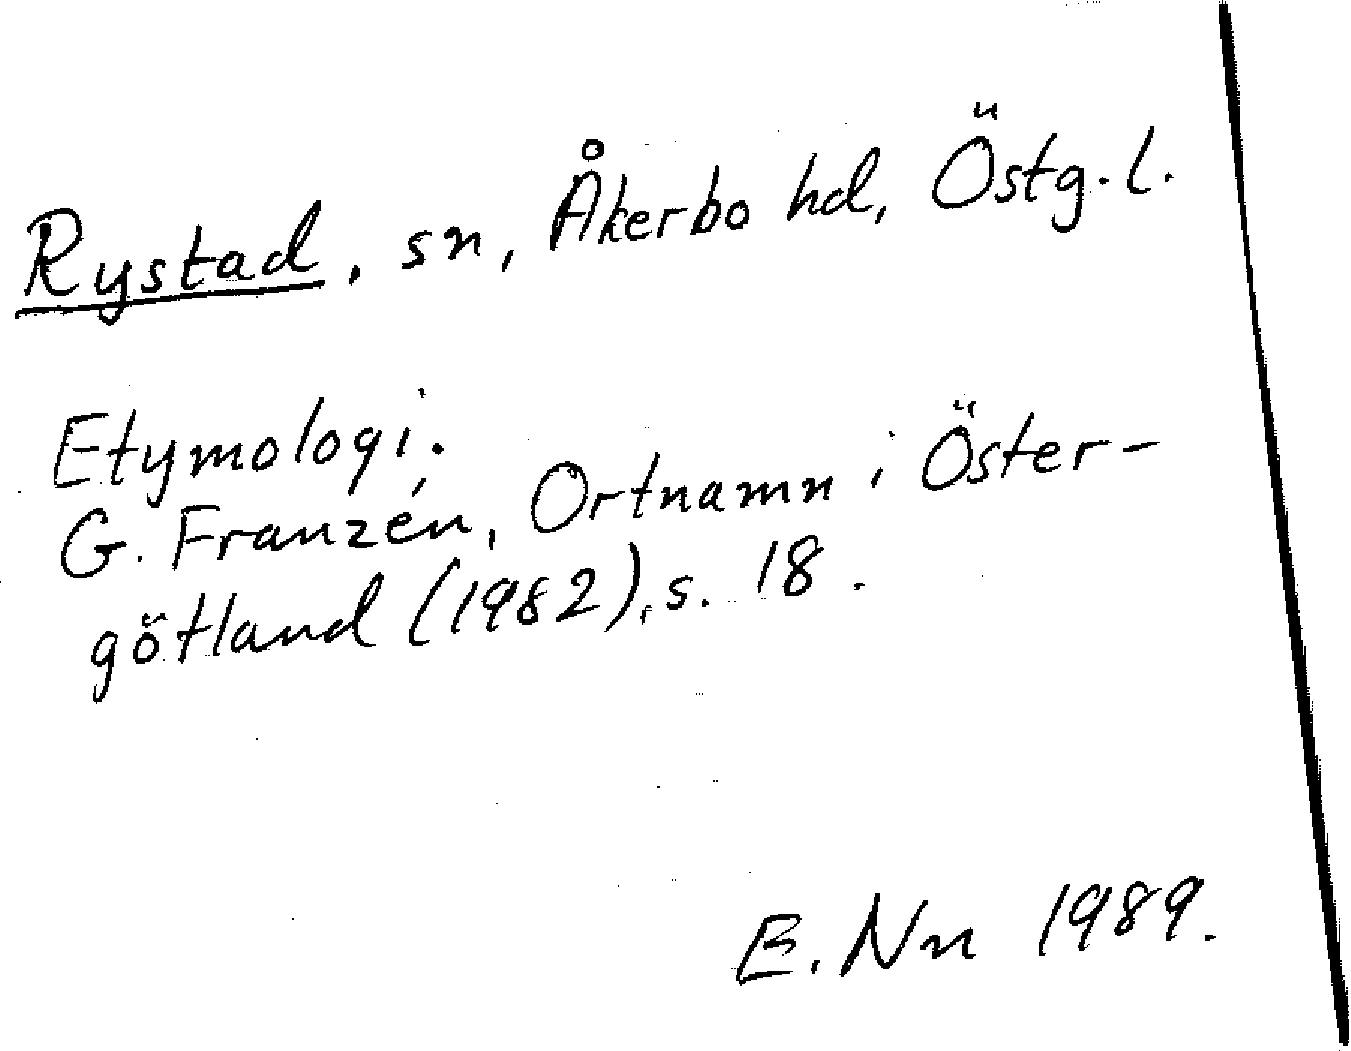 Rystad, sn, Åkerbo hd, Östg.l.
Etymologi.
G. Franzén, Ortnamn i Öster-
götland (1982), s. 18.
E. Nn 1989.